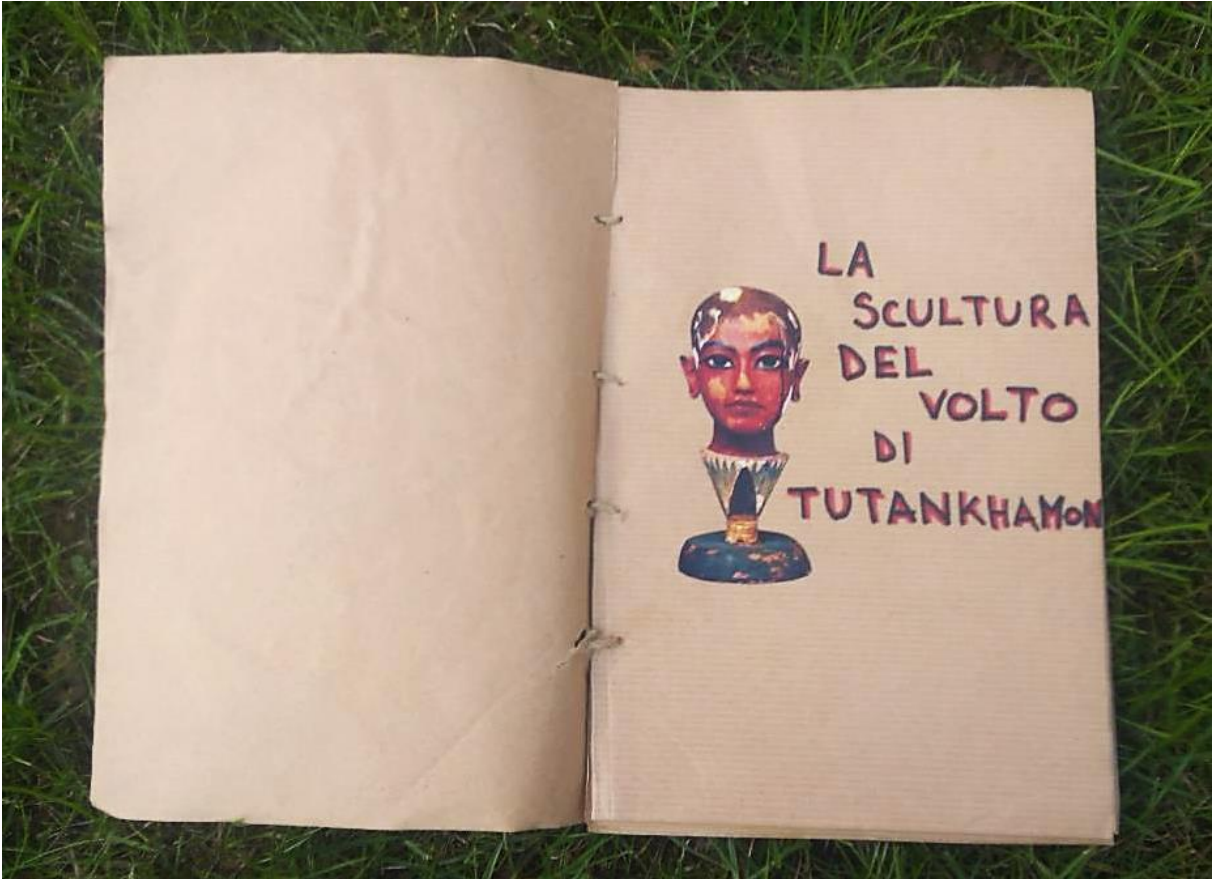 LA
SCULTURA
DEL
VOLTO
DI
TUTANKHAMON